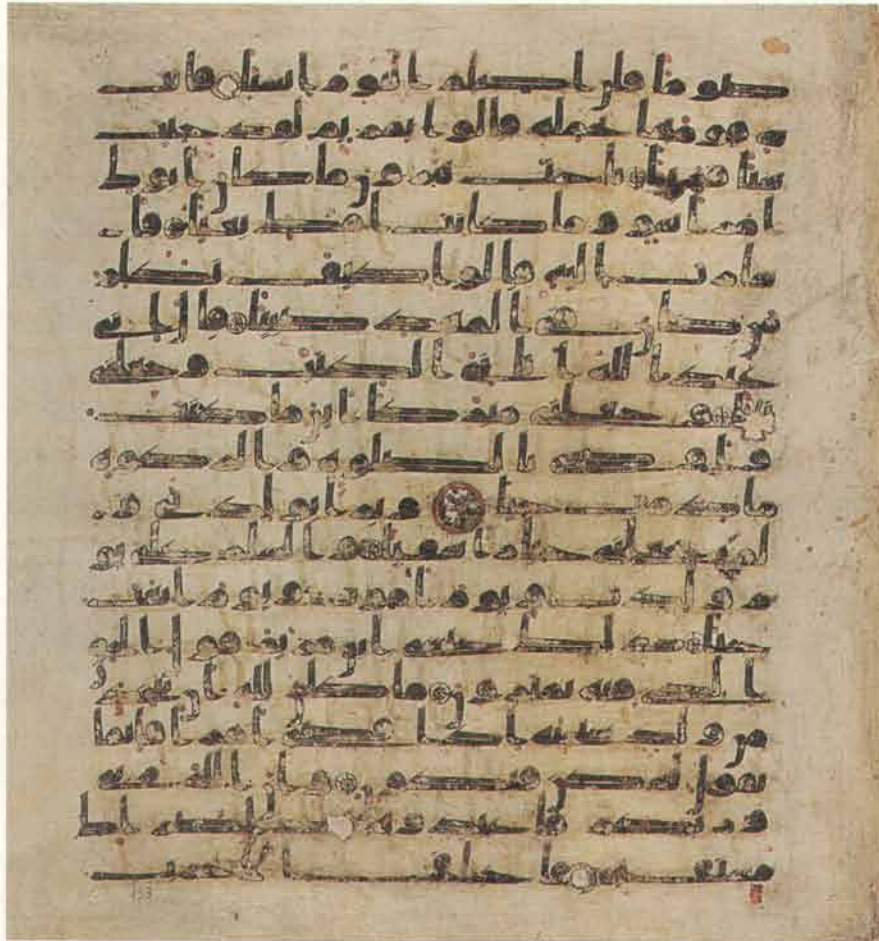 صوما فلن اكلم اليوم انسيا فاتـ
ـت به قومها تحمله قالوا يمريم لقد جيت
شيا فريا ياخت هرون ما كان ابوك
امرا سو وما كانت امك بغيا فا
شارت اليه قالوا كيف نكلم
من كان في المهد صبيا قال اني
عبد الله اتني الكتب وجعلني
نبيا وجعلني مبركا اين ما كنت
واوصني بالصلوه والزكوه
ما دمت حيا وبرا بولدتي و
لم يجعلني جبارا شقيا والسلم علي يو
م ولدت ويوم اموت ويوم ابعث
حيا ذلك عيسى ابن مريم قول الحق
الذي فيه يمترون ما كان لله ان يتخذ
من ولد سبحنه اذا قضى امرا فانما
يقول له كن فيكون وان الله ربي
وربكم فاعبدوه هذا صرط
مستقيم فاختلف الاحزب